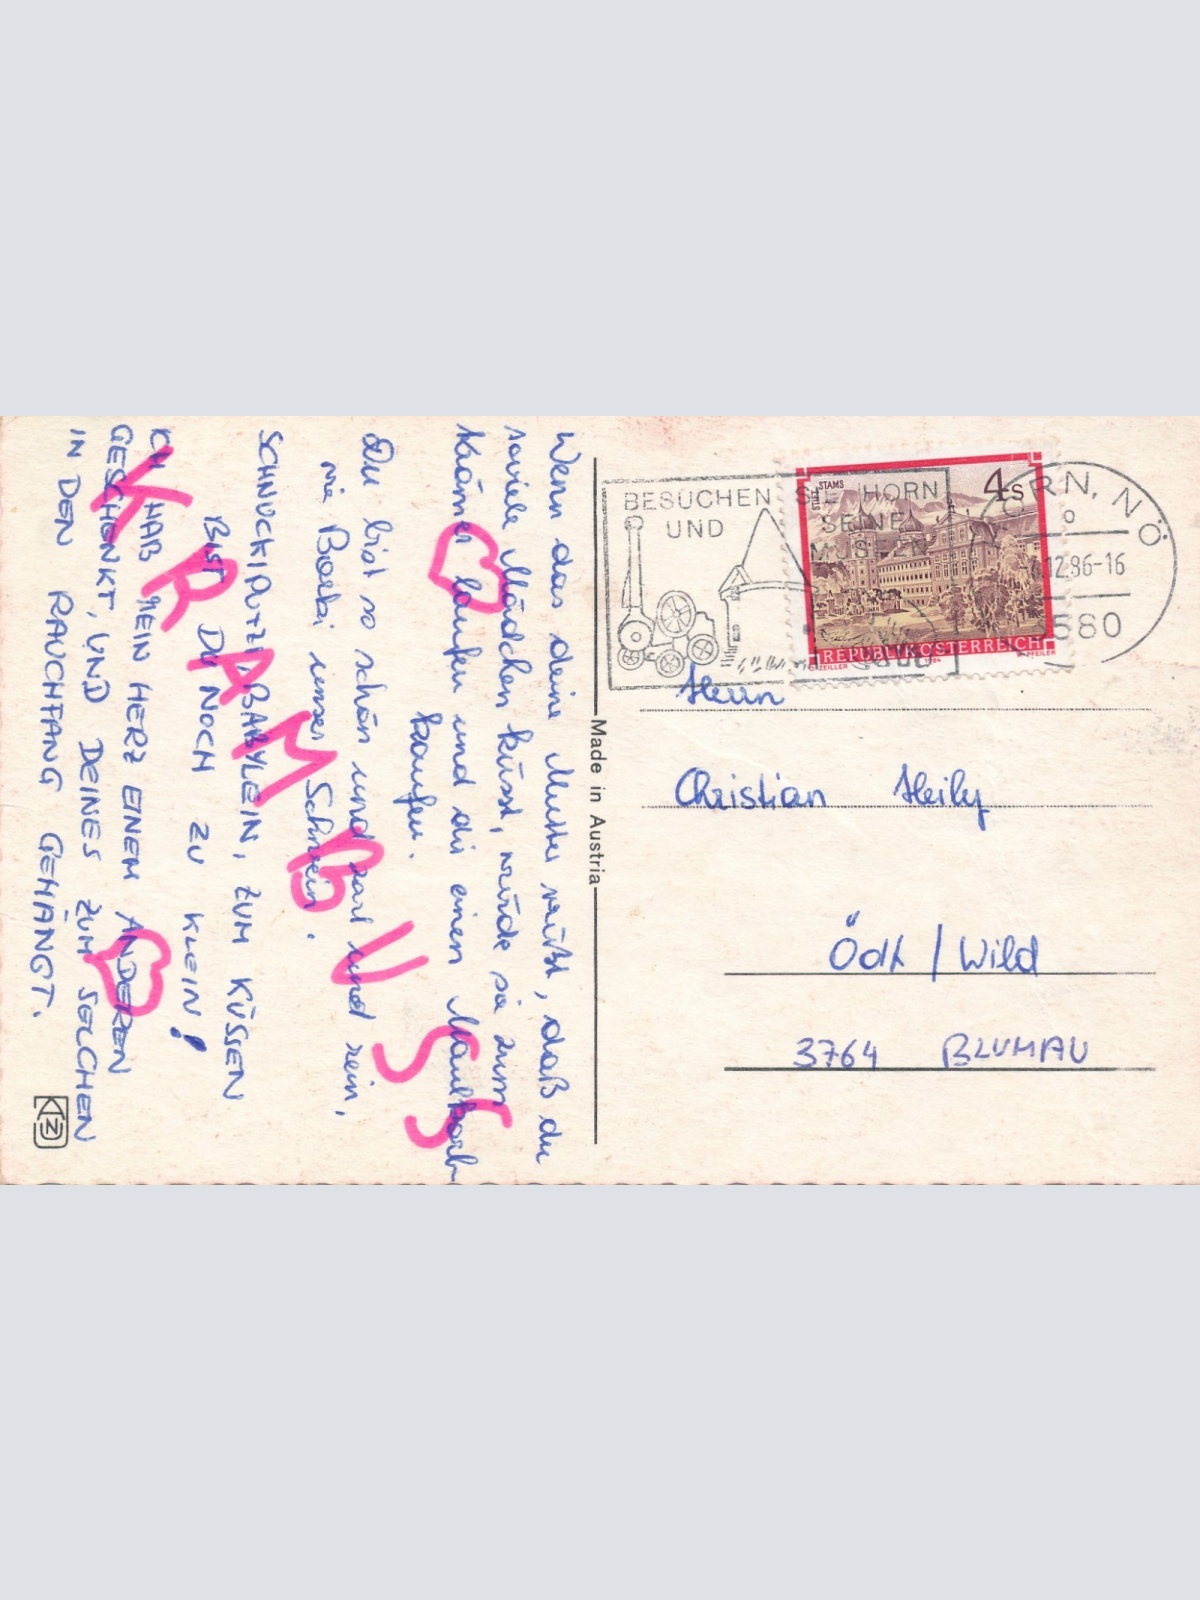 Wenn das deine Mutter wüßt, daß du
soviele Mädchen küsst, würde sie zum
Krämer laufen und dir einen Maulkorb
kaufen.
Du bist so schön und zart und rein,
wie Borki unser Schwein.
SCHNUCKIPUTZI BABYLEIN, ZUM KÜSSEN
BIST DU NOCH ZU KLEIN!
ICH HAB MEIN HERZ EINEM ANDEREN
GESCHENKT, UND DEINES ZUM SELCHEN
IN DEN RAUCHFANG GEHÄNGT.
KRAMBUSS
Made in Austria
BESUCHEN SIE HORN
UND SEINE
MUSEEN
HORN, NÖ
.12.86-16
3580
STIFT STAMS
4 S
REPUBLIK ÖSTERREICH
ZEILLER 1984 PFEILER
Herrn
Christian Heily
Ödt / Wild
3764 BLUMAU